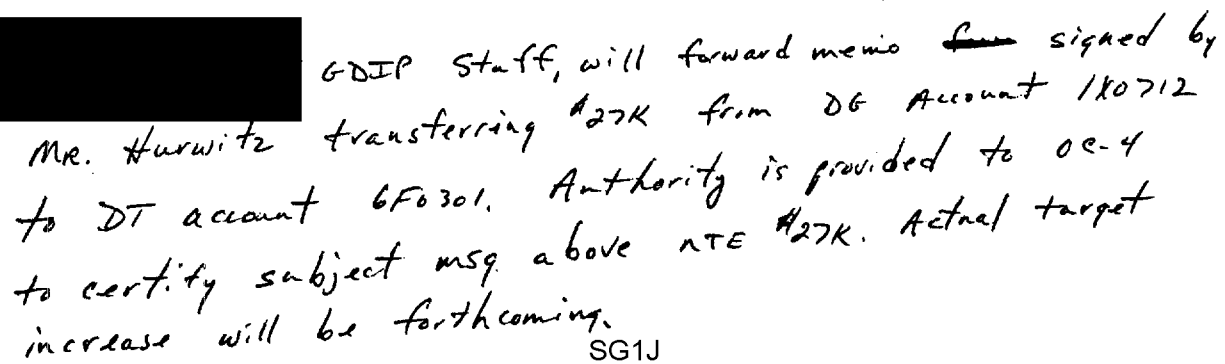 GDIP Staff, will forward memo signed by
Mr. Hurwitz transferring $27K from DG Account 1X0712
to DT account 6F0301. Authority is provided to OC-4
to certify subject msg above NTE $27K. Actual target
increase will be forthcoming.
SG1J